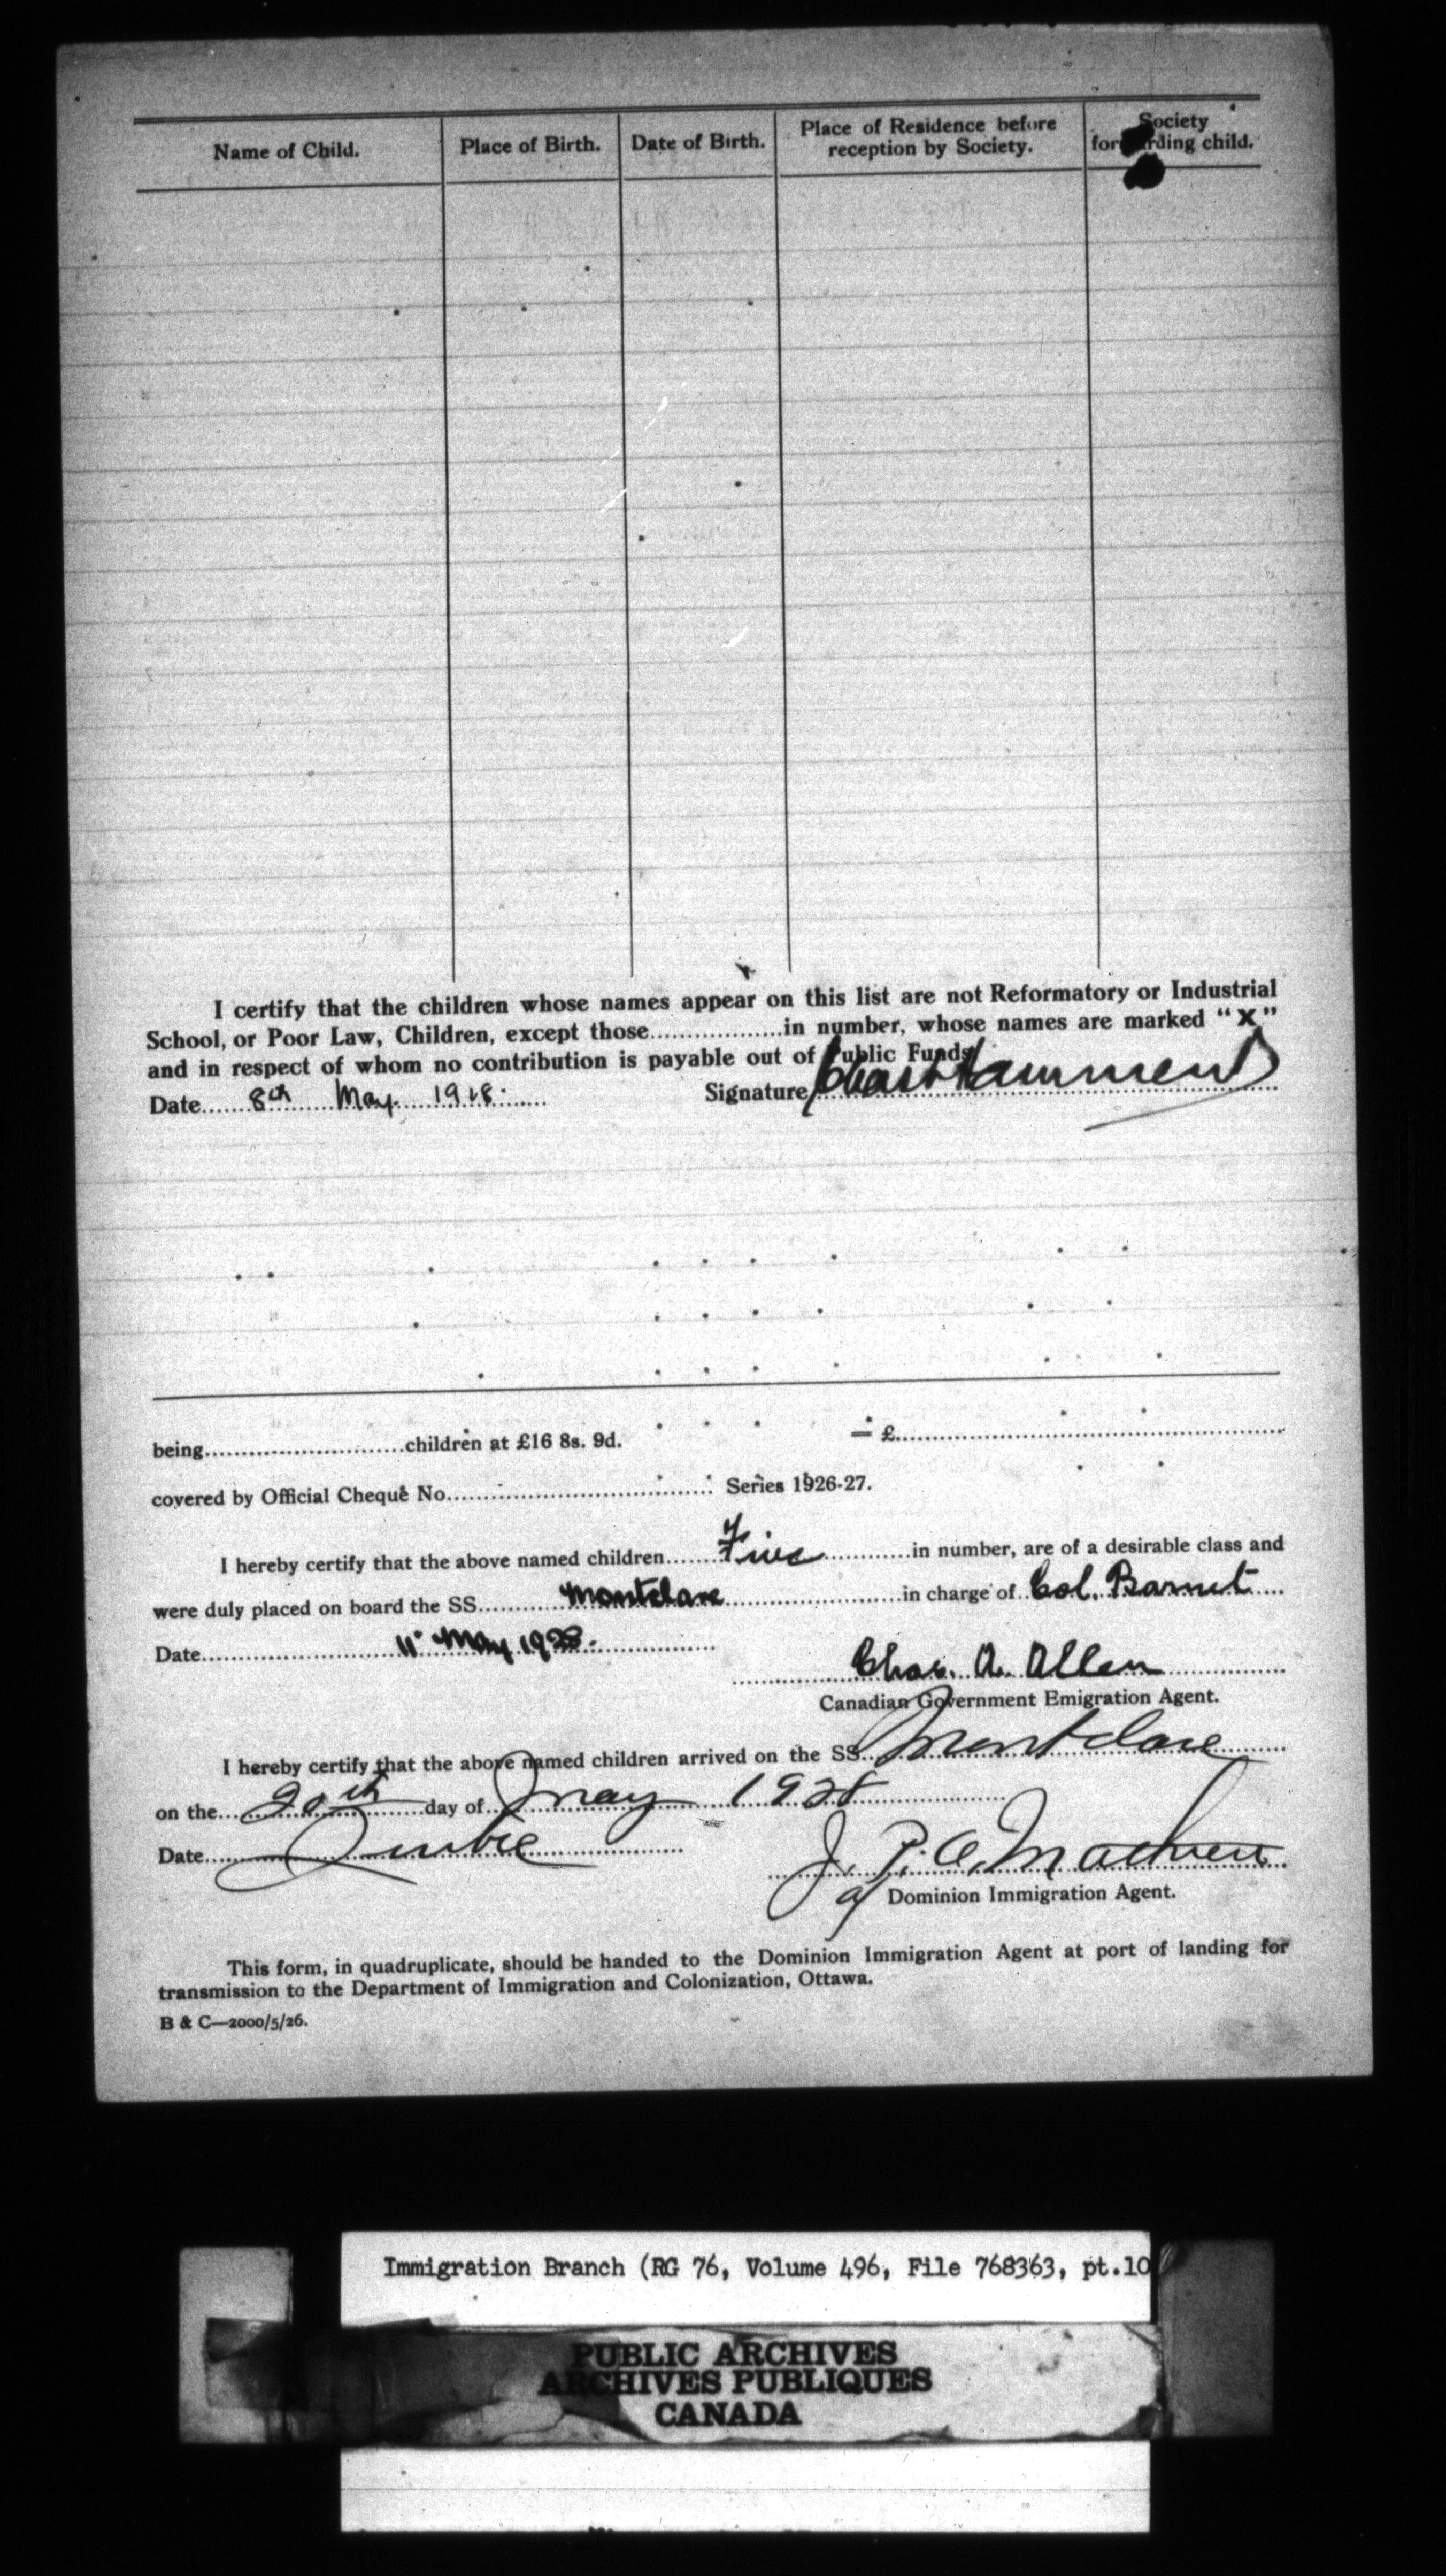 Name of Child.
Place of Birth.
Date of Birth.
Place of Residence before
reception by Society.
Society
forwarding child.
I certify that the children whose names appear on this list are not Reformatory or Industrial
School, or Poor Law, Children, except those..................in number, whose names are marked “X”
and in respect of whom no contribution is payable out of Public Funds
Date 8th May. 1928. Signature
being...........................children at £16 8s. 9d. = £
covered by Official Cheque No. Series 1926-27.
I hereby certify that the above named children Five in number, are of a desirable class and
were duly placed on board the SS. Montclare in charge of Col. Barnet
Date 11 May 1928.
Chas. A. Allen
Canadian Government Emigration Agent.
I hereby certify that the above named children arrived on the SS. Montclare
on the 20th day of May 1928
Date Quebec
J. P. O.
Dominion Immigration Agent.
This form, in quadruplicate, should be handed to the Dominion Immigration Agent at port of landing for
transmission to the Department of Immigration and Colonization, Ottawa.
B & C—2000/5/26.
Immigration Branch (RG 76, Volume 496, File 768363, pt.10
PUBLIC ARCHIVES
ARCHIVES PUBLIQUES
CANADA